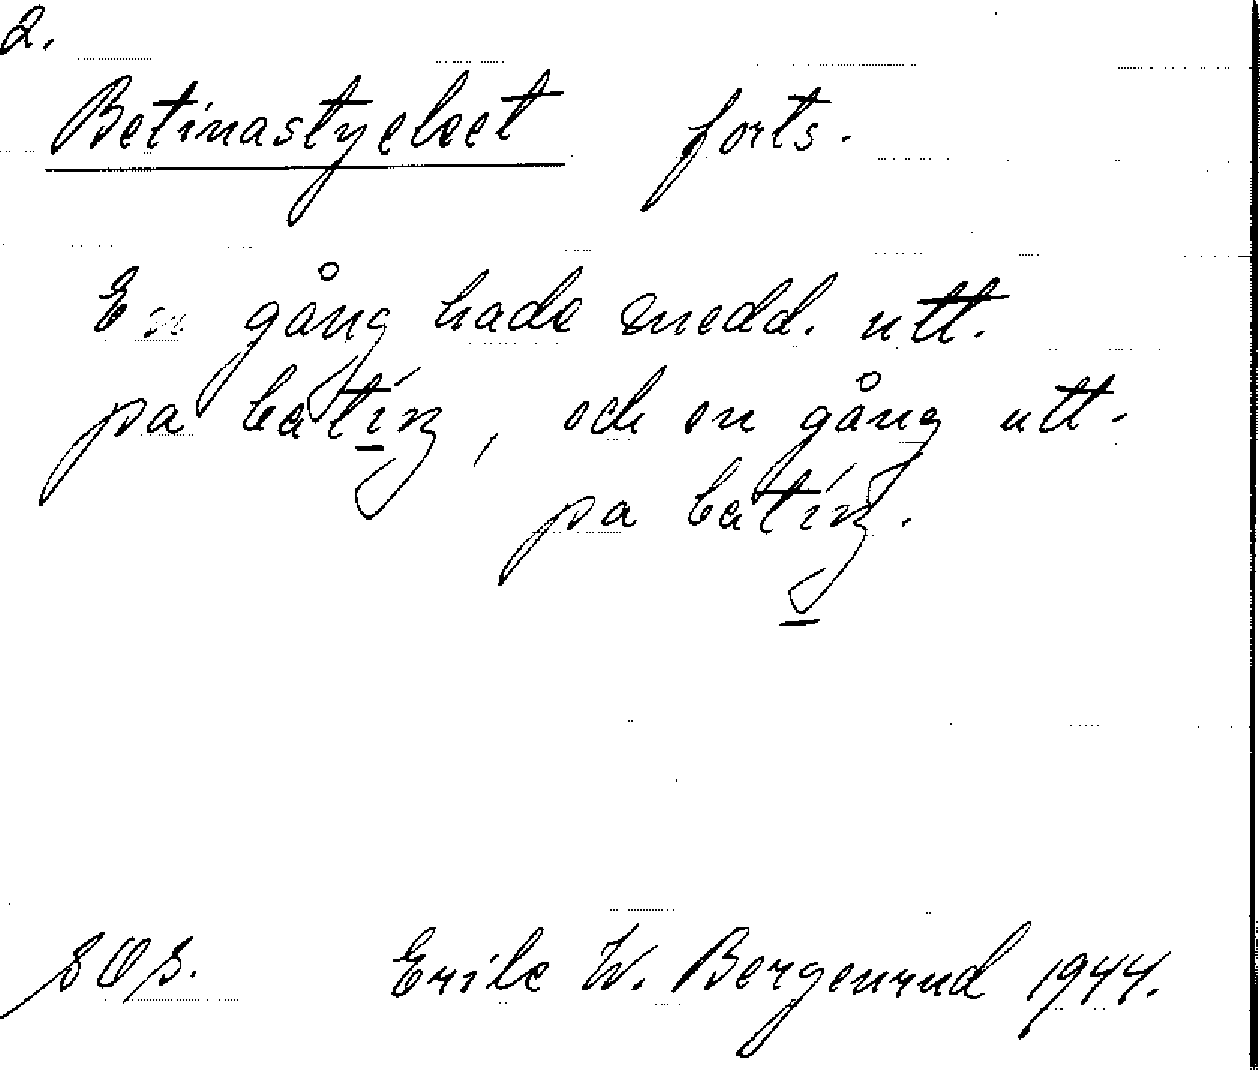 2.
Betinastycket forts.
En gång hade medd. utt.
pa batíŋ, och en gång utt.
pa batíŋ.
SOS. Erik W. Bergenrud 1944.